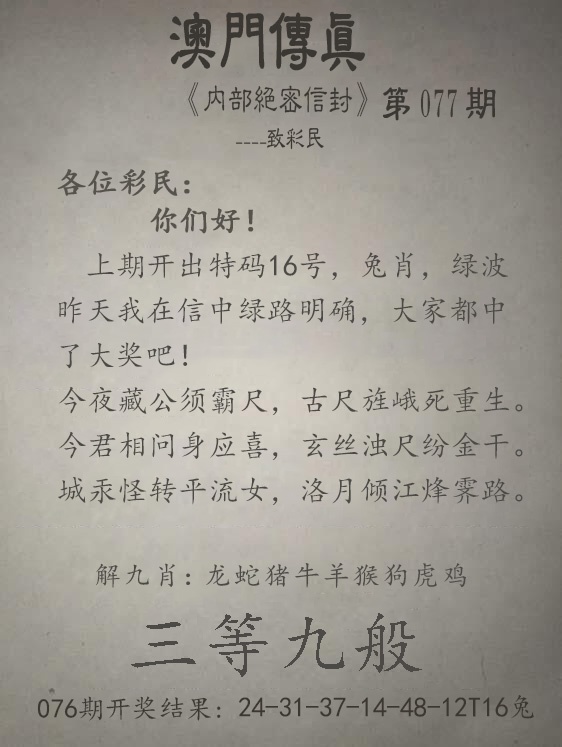 澳門傳真
《内部絕密信封》第077期
----致彩民
各位彩民：
你们好！
上期开出特码16号，兔肖，绿波
昨天我在信中绿路明确，大家都中
了大奖吧！
今夜藏公须霸尺，古尺旌峨死重生。
今君相问身应喜，玄丝浊尺纷金干。
城汞怪转平流女，洛月倾江烽霁路。
解九肖：龙蛇猪牛羊猴狗虎鸡
三等九般
076期开奖结果：24-31-37-14-48-12T16兔